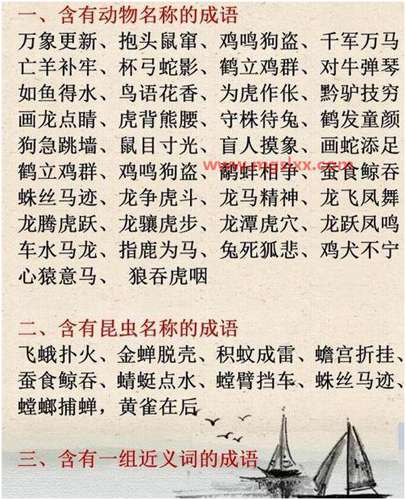 一、含有动物名称的成语
万象更新、抱头鼠窜、鸡鸣狗盗、千军万马
亡羊补牢、杯弓蛇影、鹤立鸡群、对牛弹琴
如鱼得水、鸟语花香、为虎作伥、黔驴技穷
画龙点睛、虎背熊腰、守株待兔、鹤发童颜
狗急跳墙、鼠目寸光、盲人摸象、画蛇添足
www.mgslxx.com
鹤立鸡群、鸡鸣狗盗、鹬蚌相争、蚕食鲸吞
蛛丝马迹、龙争虎斗、龙马精神、龙飞凤舞
龙腾虎跃、龙骧虎步、龙潭虎穴、龙跃凤鸣
车水马龙、指鹿为马、兔死狐悲、鸡犬不宁
心猿意马、 狼吞虎咽
二、含有昆虫名称的成语
飞蛾扑火、金蝉脱壳、积蚊成雷、蟾宫折挂、
蚕食鲸吞、蜻蜓点水、螳臂挡车、蛛丝马迹、
螳螂捕蝉，黄雀在后
三、含有一组近义词的成语